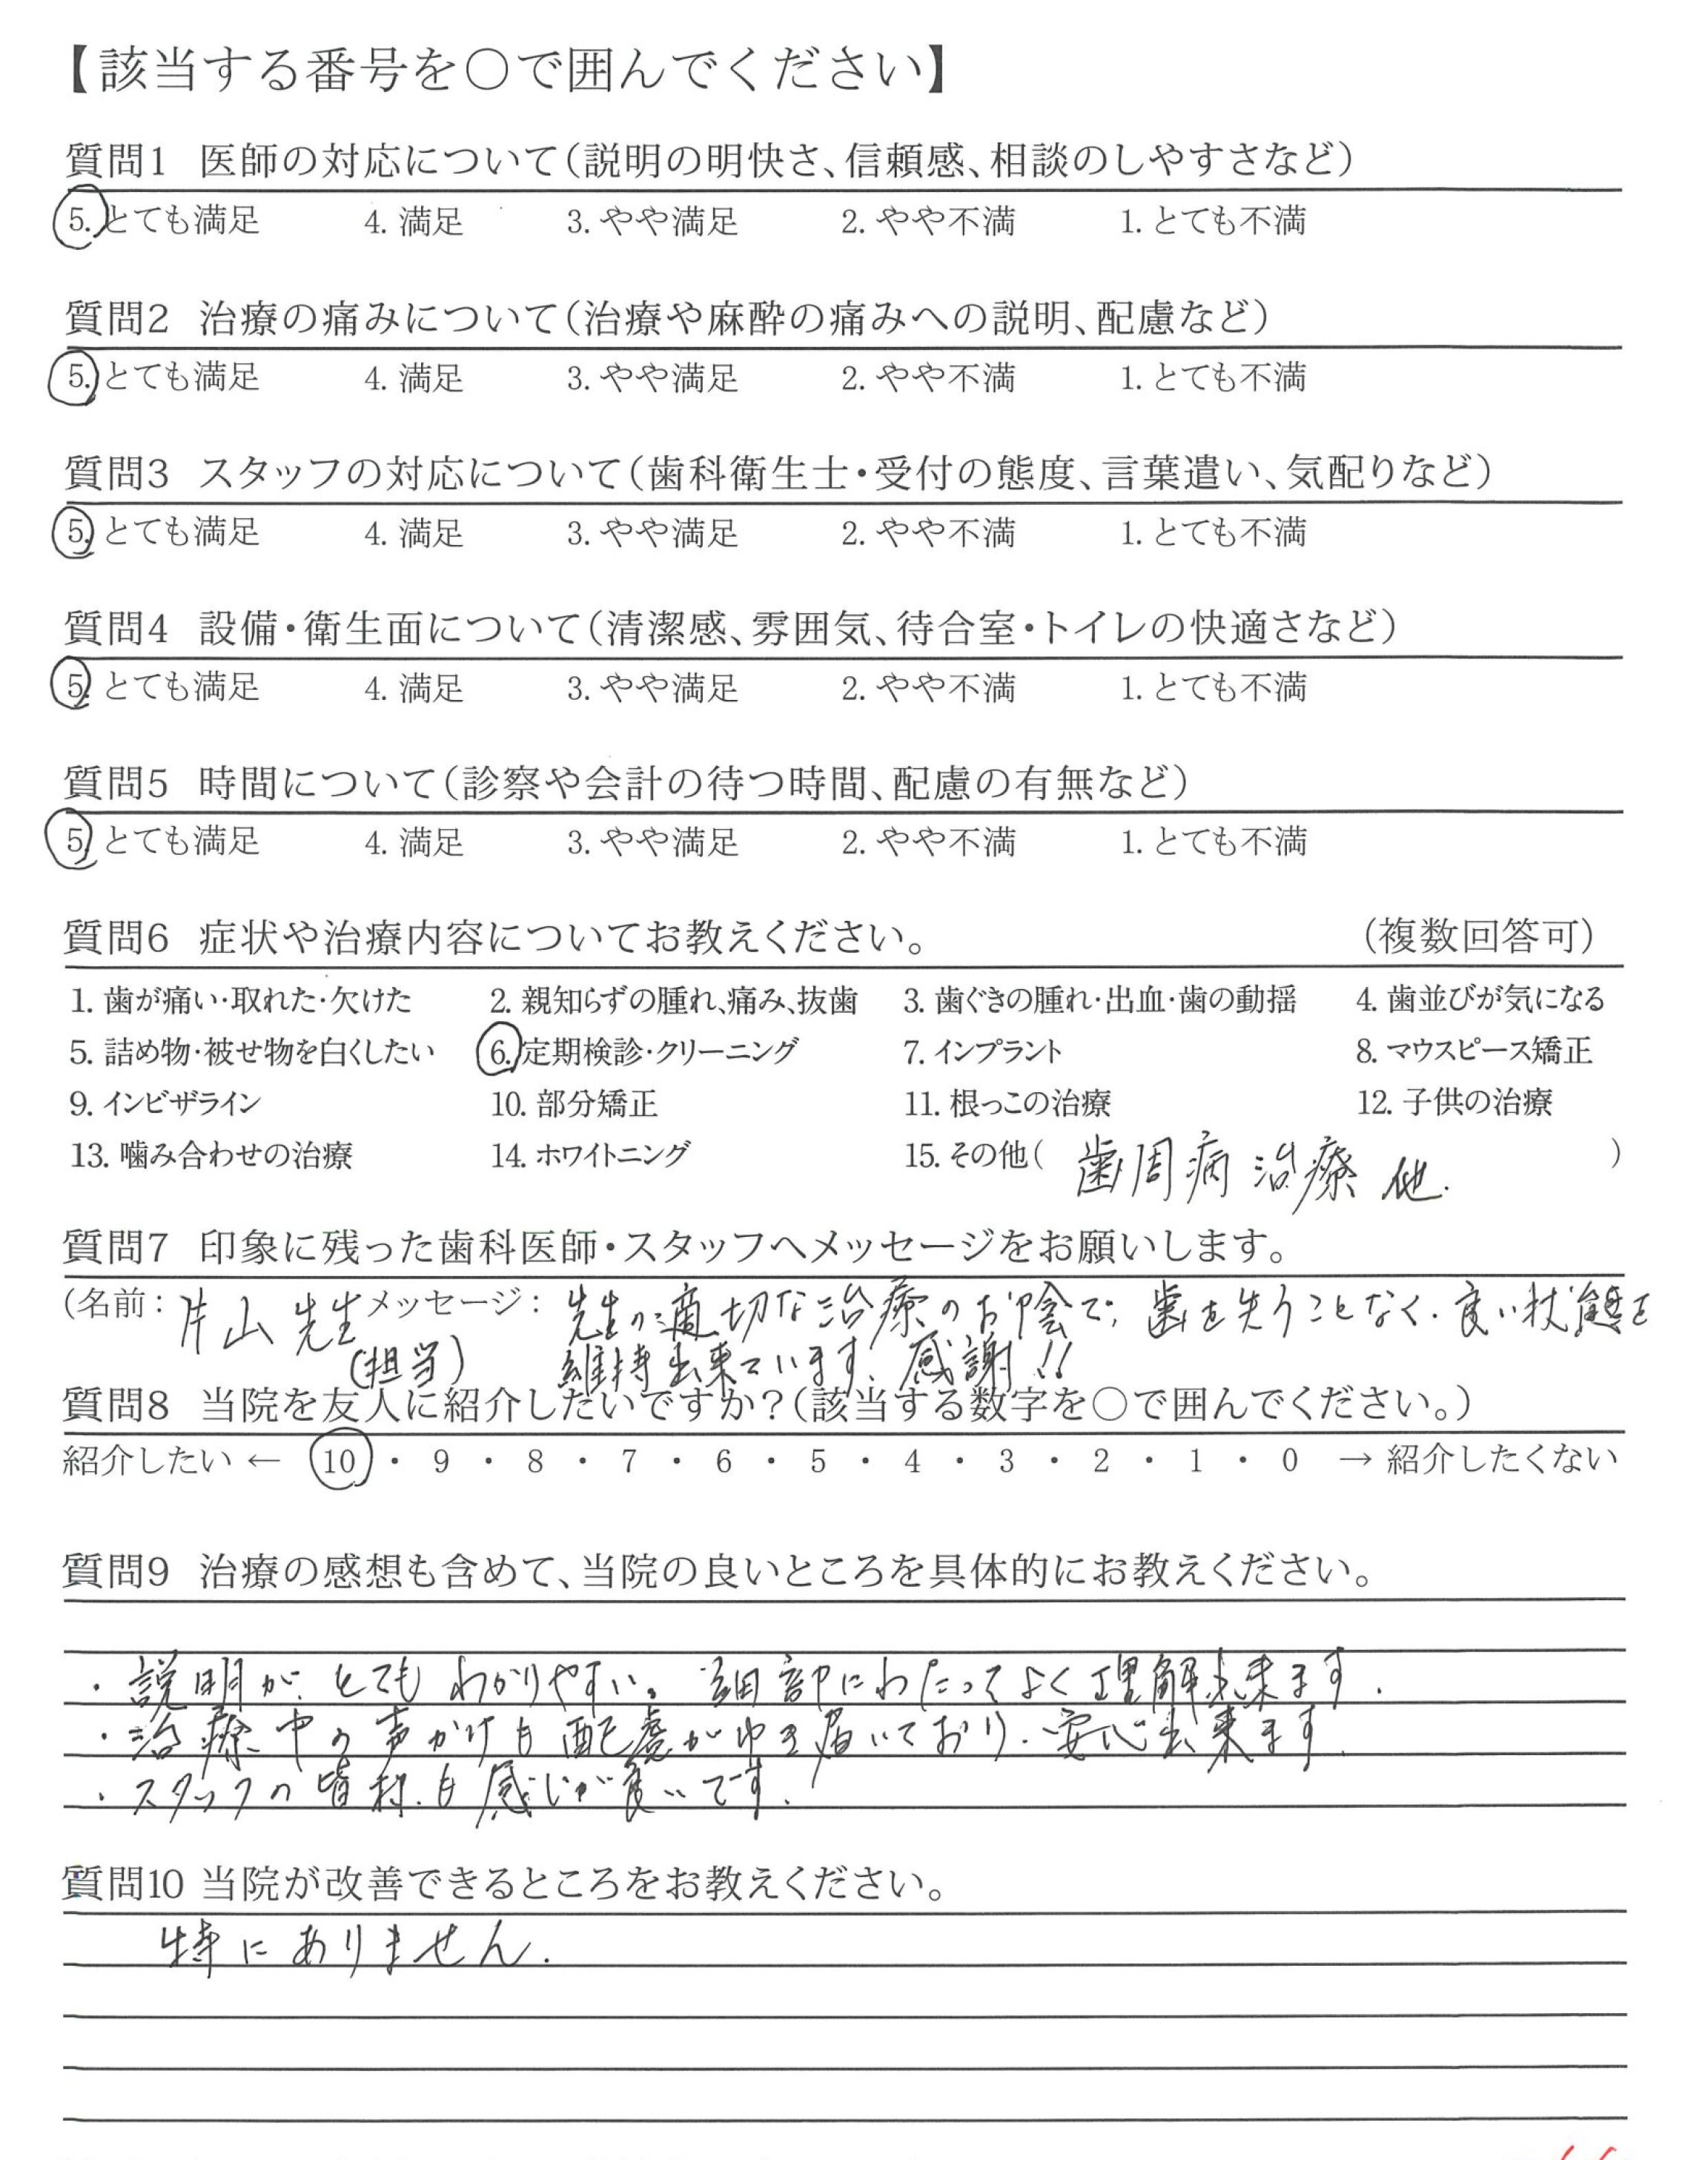 【該当する番号を○で囲んでください】
質問1 医師の対応について（説明の明快さ、信頼感、相談のしやすさなど）
5. とても満足 4. 満足 3. やや満足 2. やや不満 1. とても不満
質問2 治療の痛みについて（治療や麻酔の痛みへの説明、配慮など）
5. とても満足 4. 満足 3. やや満足 2. やや不満 1. とても不満
質問3 スタッフの対応について（歯科衛生士・受付の態度、言葉遣い、気配りなど）
5. とても満足 4. 満足 3. やや満足 2. やや不満 1. とても不満
質問4 設備・衛生面について（清潔感、雰囲気、待合室・トイレの快適さなど）
5. とても満足 4. 満足 3. やや満足 2. やや不満 1. とても不満
質問5 時間について（診察や会計の待つ時間、配慮の有無など）
5. とても満足 4. 満足 3. やや満足 2. やや不満 1. とても不満
質問6 症状や治療内容についてお教えください。 （複数回答可）
1. 歯が痛い・取れた・欠けた 2. 親知らずの腫れ、痛み、抜歯 3. 歯ぐきの腫れ・出血・歯の動揺 4. 歯並びが気になる
5. 詰め物・被せ物を白くしたい 6. 定期検診・クリーニング 7. インプラント 8. マウスピース矯正
9. インビザライン 10. 部分矯正 11. 根っこの治療 12. 子供の治療
13. 噛み合わせの治療 14. ホワイトニング 15. その他（ 歯周病治療 他. ）
質問7 印象に残った歯科医師・スタッフへメッセージをお願いします。
（名前： 片山 先生 メッセージ： 先生の適切な治療のお陰で、歯を失うことなく、良い状態を
（担当） 維持出来ています。感謝!!
質問8 当院を友人に紹介したいですか？（該当する数字を○で囲んでください。）
紹介したい ← 10 ・ 9 ・ 8 ・ 7 ・ 6 ・ 5 ・ 4 ・ 3 ・ 2 ・ 1 ・ 0 → 紹介したくない
質問9 治療の感想も含めて、当院の良いところを具体的にお教えください。
・説明が、とてもわかりやすい。細部にわたってよく理解出来ます.
・治療中の声かけも配慮がゆき届いており、安心出来ます.
・スタッフの皆様も感じが良いです.
質問10 当院が改善できるところをお教えください。
特にありません.